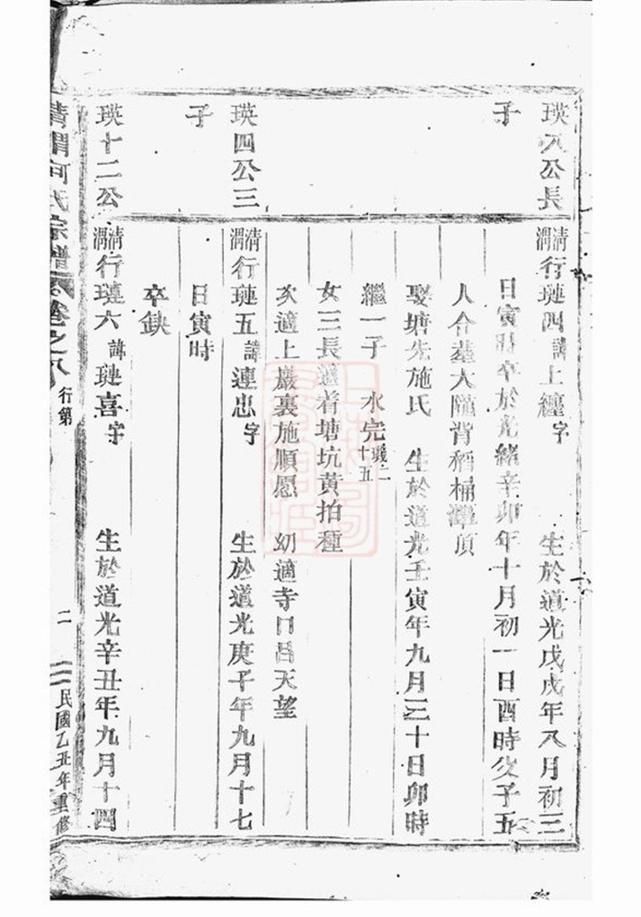 瑛八公長
子
清渭行璉四諱上纏字 生於道光戊戌年八月初三
日寅時卒於光緒辛卯年十月初一日酉時父子五
人合墓大隴背稻桶潭頂
娶塘先施氏 生於道光壬寅年九月三十日卯時
繼一子 水完 十五
女三長適若塘坑黄拍種
次適上巖裏施順愿 幼適寺口呂天望
瑛四公三
子
清渭行璉五諱連忠字 生於道光庚子年九月十七
日寅時
卒缺
瑛十二公
清渭行璉六諱璉喜字 生於道光辛丑年九月十四
清渭何氏宗譜 卷之八 行第 二 民國乙丑年重修